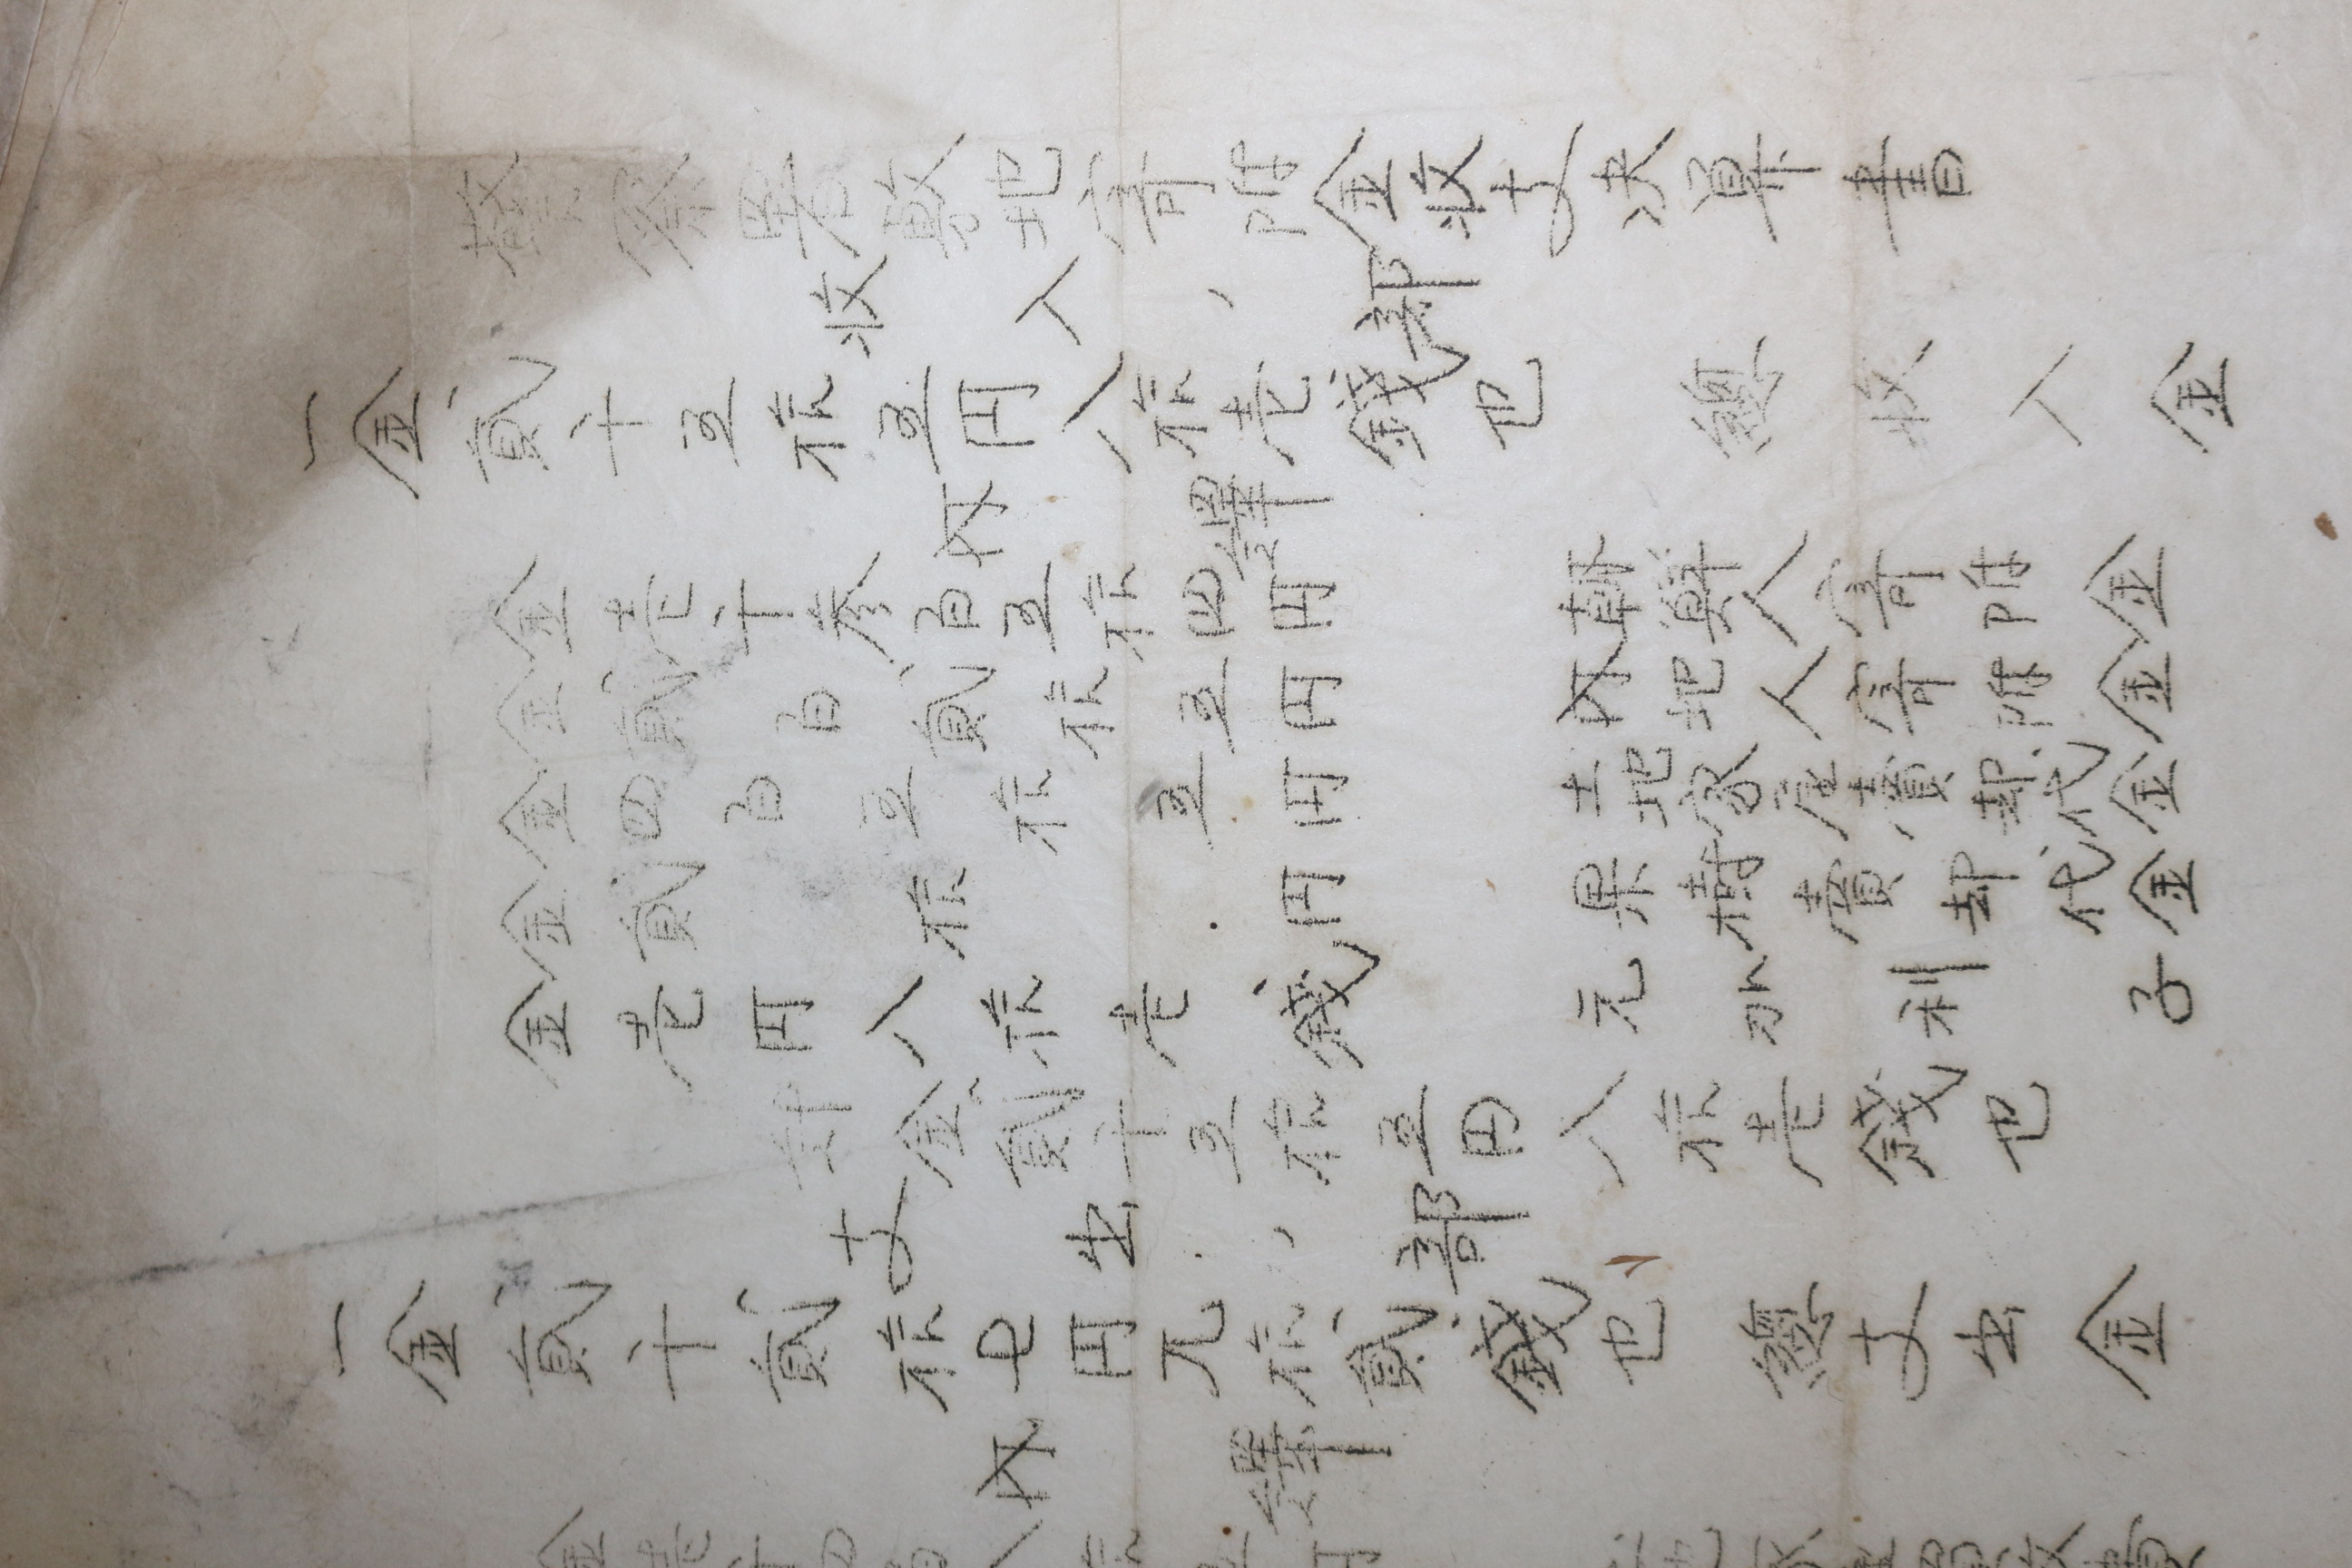 警察署敷地寄附金收支决算書
收入ノ部
一金貳千五拾五円八拾壱錢也 總收入金
内譯
金壱千参百五拾四円 朝鮮人寄附金
金貳百貳拾五円 内地人寄附金
金四百五拾五円 土地家屋賣却代金
金貳拾円 果樹賣却代金
金壱円八拾壱錢 元加利子
計金貳千五拾五円八拾壱錢也
支出ノ部
一金貳千貳拾七円九拾貳錢也 總支出金
内譯